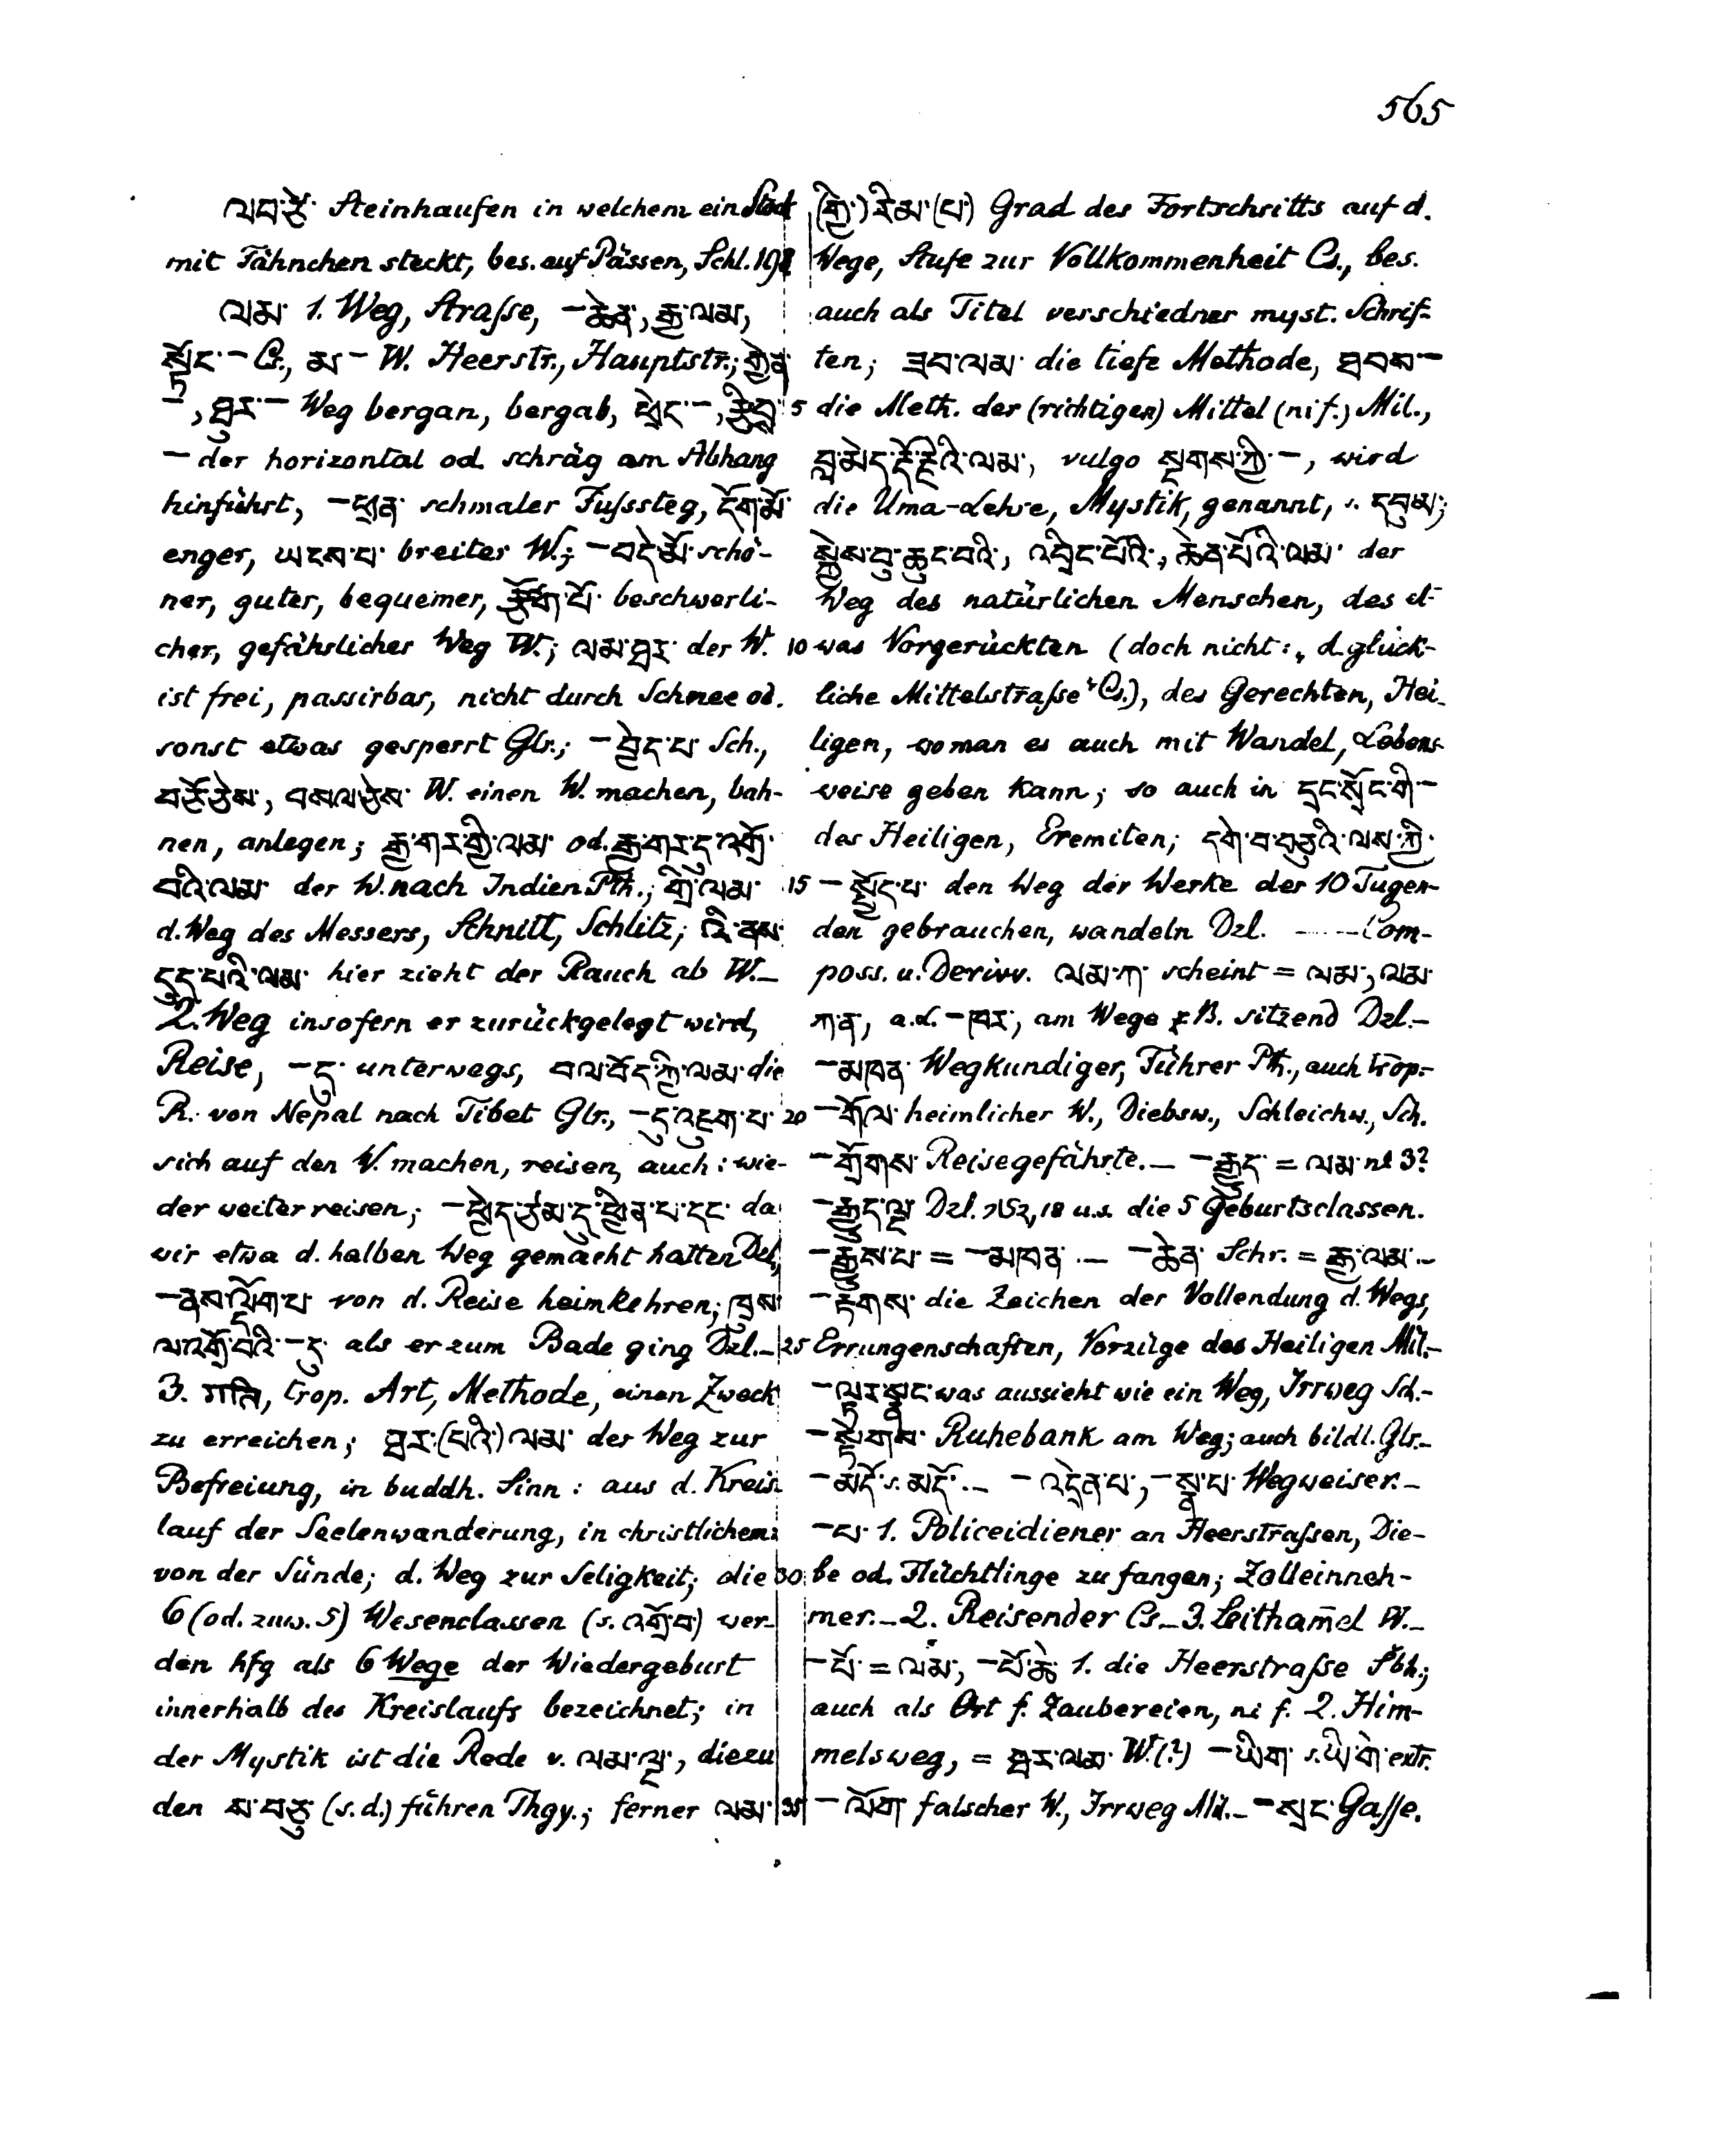 565
ལབ་ཙེ་ Steinhaufen in welchem ein Stock
mit Fähnchen steckt, bes. auf Pässen, Schl. 198
ལམ་ 1. Weg, Strasse, – ཆེན་, རྒྱ་ལམ་,
སྲོང་ – Cs., མ – W. Heerstr., Hauptstr.; གྱེན་
–, ཐུར་ – Weg bergan, bergab, འཕྲེད་ –,
– der horizontal od. schräg am Abhang
hinführt, – ཕྲན་ schmaler Fusssteg, དོག་མོ་
enger, ཡངས་པ་ breiter W.; – བདེ་མོ་ schö-
ner, guter, bequemer, རྩོག་པོ་ beschwerli-
cher, gefährlicher Weg W.; ལམ་ཐར་ der W.
ist frei, passirbar, nicht durch Schnee od.
sonst etwas gesperrt Glr.; – བྱེད་པ་ Sch.,
བཅོ་ཅེས་, བསལ་ཅེས་ W. einen W. machen, bah-
nen, anlegen; རྒྱ་གར་གྱི་ལམ་ od. རྒྱ་གར་དུ་འགྲོ་
བའི་ལམ་ der W. nach Indien Pth.; གྲི་ལམ་
d. Weg des Messers, Schnitt, Schlitz; འི་ནས་
དུད་པའི་ལམ་ hier zieht der Rauch ab W. –
2. Weg insofern er zurückgelegt wird,
Reise, – དུ་ unterwegs, བལ་བོད་ཀྱི་ལམ་ die
R. von Nepal nach Tibet Glr., – དུ་འཇུག་པ་
sich auf den W. machen, reisen, auch: wie-
der weiter reisen; – ཕྱེད་ཙམ་དུ་ཕྱིན་པ་དང་ da
wir etwa d. halben Weg gemacht hatten Dzl.,
– ནས་ལྡོག་པ་ von d. Reise heimkehren; ཁྲུས་
ལ་འགྲོ་བའི་ – དུ་ als er zum Bade ging Dzl. –
3. गति, trop. Art, Methode, einen Zweck
zu erreichen; ཐར་(པའི་)ལམ་ der Weg zur
Befreiung, in buddh. Sinn: aus d. Kreis
lauf der Seelenwanderung, in christlichem:
von der Sünde; d. Weg zur Seligkeit; die
6 (od. zuw. 5) Wesenclassen (s. འགྲོ་བ་) wer-
den hfg als 6 Wege der Wiedergeburt
innerhalb des Kreislaufs bezeichnet; in
der Mystik ist die Rede v. ལམ་ལྔ་, die zu
den ས་བཅུ་ (s. d.) führen Thgy.; ferner ལམ་
(གྱི་)རིམ་(པ་) Grad des Fortschritts auf d.
Wege, Stufe zur Vollkommenheit Cs., bes.
auch als Titel verschiedner myst. Schrif-
ten; ཟབ་ལམ་ die tiefe Methode, ཐབས་ –
5 die Meth. der (richtigen) Mittel (ni f.) Mil.,
བླ་མེད་རྡོ་རྗེའི་ལམ་, vulgo སྔགས་ཀྱི་ –, wird
die Uma-Lehre, Mystik, genannt, s. དབུམ་;
སྐྱེས་བུ་ཆུང་བའི་, འབྲིང་པོའི་, ཆེན་པོའི་ལམ་ der
Weg des natürlichen Menschen, des et-
10 was Vorgerückten (doch nicht: „d. glück-
liche Mittelstrasse" Cs.), des Gerechten, Hei-
ligen, wo man es auch mit Wandel, Lebens-
weise geben kann; so auch in དྲང་སྲོང་གི་ –
des Heiligen, Eremiten; དགེ་བ་བཅུའི་ལས་ཀྱི་
15 – སྤྱོད་པ་ den Weg der Werke der 10 Tugen-
den gebrauchen, wandeln Dzl. – Com-
poss. u. Derivv. ལམ་ཀ་ scheint = ལམ་, ལམ་
ཀ་ན་, a. d. – ཁར་, am Wege z.B. sitzend Dzl. –
– མཁན་ Wegkundiger, Führer Pth., auch trop. –
20 – གོལ་ heimlicher W., Diebsw., Schleichw., Sch.
– གྲོགས་ Reisegefährte. – – རྒྱུད་ = ལམ་ no 3?
– རྒྱུད་ལྔ་ Dzl. 252,18 u.s. die 5 Geburtsclassen.
– རྒྱུས་པ་ = – མཁན་. – – ཆེན་ Schr. = རྒྱ་ལམ་. –
– རྟགས་ die Zeichen der Vollendung d. Wegs,
25 Errungenschaften, Vorzüge des Heiligen Mil. –
– ལྟར་སྣང་ was aussieht wie ein Weg, Irrweg Sch. –
– སྟེགས་ Ruhebank am Weg; auch bildl. Glr. –
– མདོ་ s. མདོ་. – – འདྲེན་པ་, – སྣ་པ་ Wegweiser. –
– པ་ 1. Policeidiener an Heerstrassen, Die-
30 be od. Flüchtlinge zu fangen; Zolleinneh-
mer. – 2. Reisender Cs. – 3. Leithamel W. –
– པོ་ = ལམ་, – པོ་ཆེ་ 1. die Heerstrasse Sbh.;
auch als Ort f. Zaubereien, ni f. 2. Him-
melsweg, = ཐར་ལམ་ W.(?) – ཡིག་ s. ཡི་གེ་ extr.
35 – ལོག་ falscher W., Irrweg Mil. – – སྲང་ Gasse.